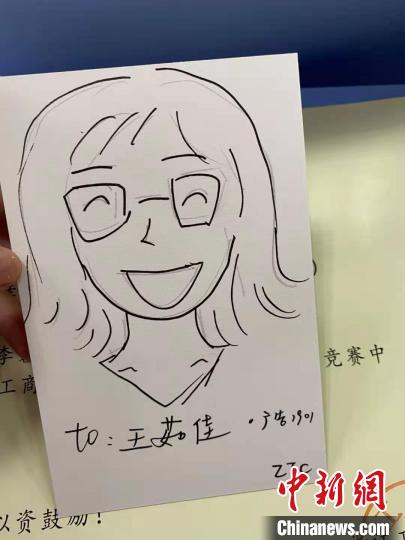 李
竞赛中
工商
to: 王茹佳 · 广告1901
ZJC
以资鼓励!
中新网
Chinanews.com